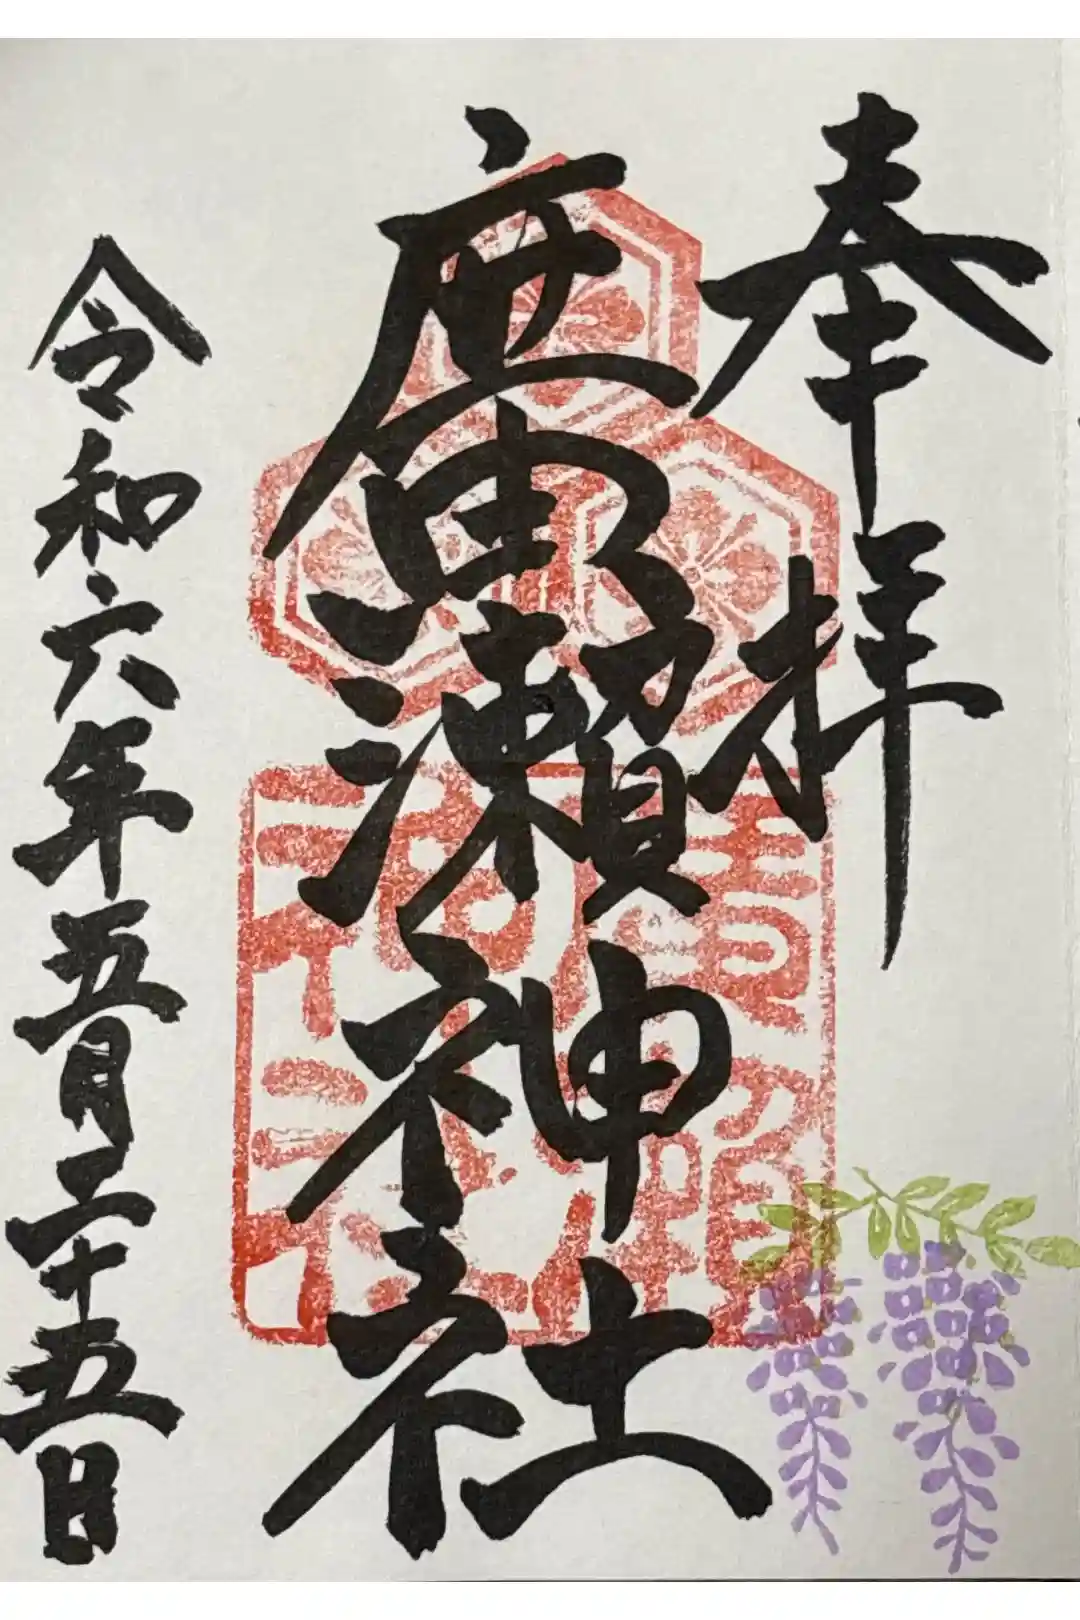 奉拝
廣瀬神社
令和六年五月二十五日